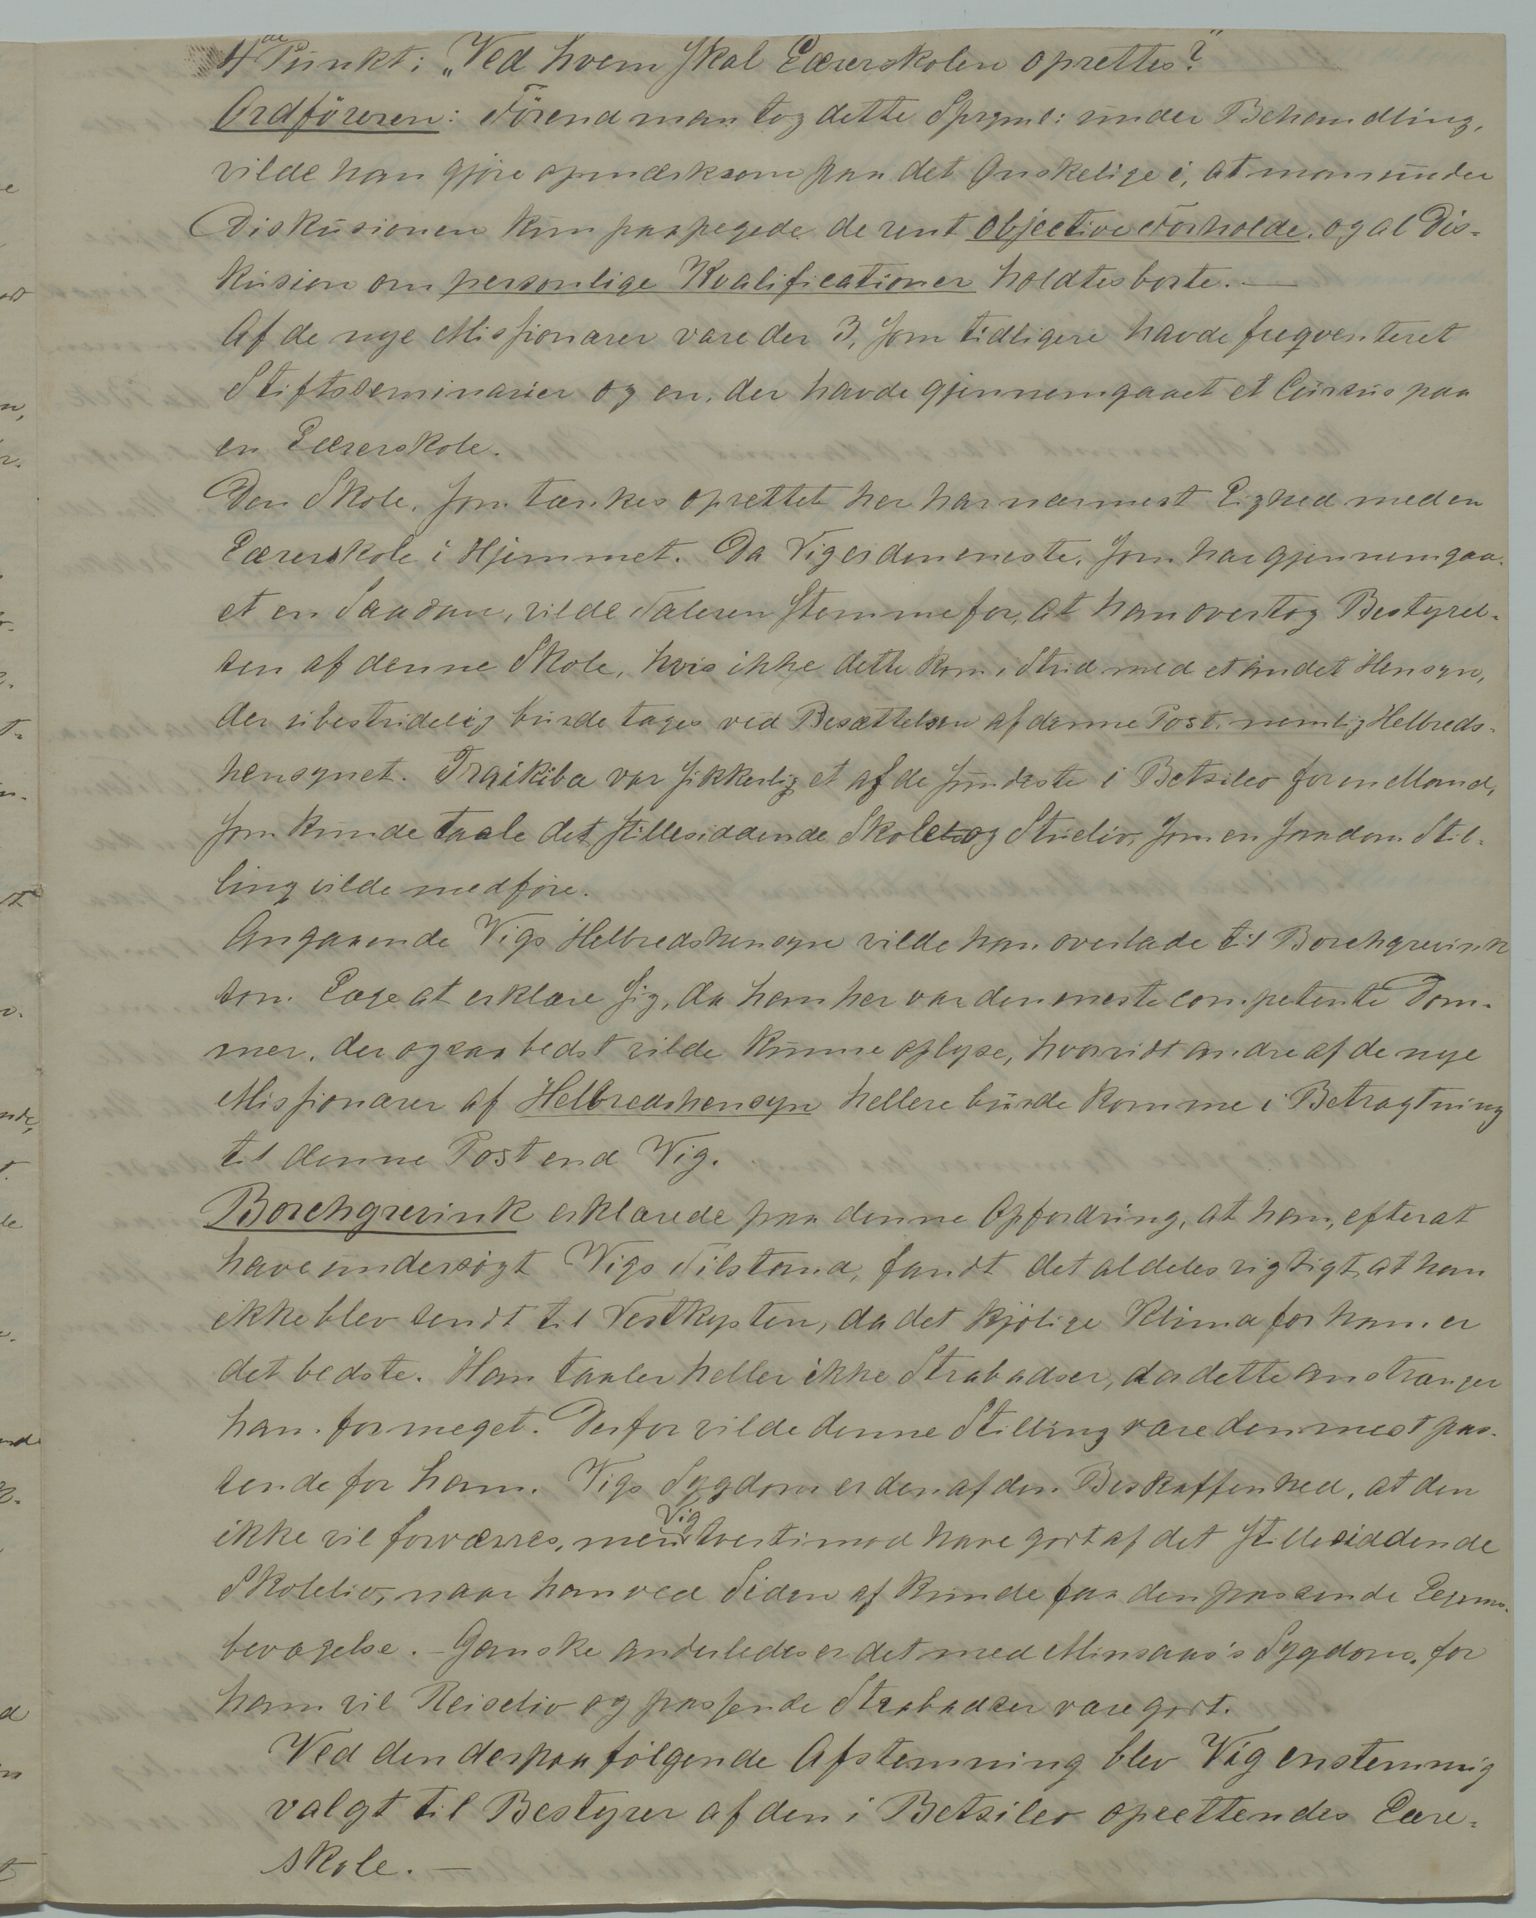 4de Punkt: "Ved hvem skal Lærerskolen oprettes?"
Ordføreren: Førend man tog dette Spcyml: under Behandling,
vilde han gjøre opmærksom paa det Ønskelige i, at man under
Diskusionen kun paapegede de rent objective Forholde, og al Dis-
kusion om personlige Kvalificationer holdtes borte. —
Af de nye Missionærer vare der 3, som tidligere havde freqventeret
Stiftsseminarier og en, der havde gjennemgaaet et Cursus paa
en Lærerskole.
Den Skole, som tænkes oprettet her har nærmest Lighed med en
Lærerskole i Hjemmet. Da Vig er den eneste, som har gjennemgaa-
et en Saadan, vilde Taleren stemme for, at han overtog Bestyrel-
sen af denne Skole, hvis ikke dette kom i Strid med et andet Hensyn,
der ubestridelig burde tages ved Besættelsen af denne Post, nemlig Helbreds-
hensynet. Fraikiba var sikkerlig et af de sundeste i Betsileo for en Mand,
som kunde taale det stillesiddende Skole og Studieliv, som en saadan Stil-
ling vilde medføre.
Angaaende Vigs Helbredshensyn vilde han overlade til Borchgrevink
som Læge at erklære sig, da han her var den eneste competente Dom-
mer, der ogsaa bedst vilde kunne oplyse, hvorvidt andre af de nye
Missionærer af Helbredshensyn hellere burde komme i Betragtning
til denne Post end Vig.
Borchgrevink erklærede paa denne Opfordring, at han, efter at
have undersøgt Vigs Tilstand, fandt det aldeles rigtigt, at han
ikke blev sendt til Vestkysten, da det kjølige Klima for ham er
det bedste. Han taaler heller ikke Strabadser, da dette anstrænger
ham for meget. Derfor vilde denne Stilling være den mest pas-
sende for ham. Vigs Sygdom er den af den Beskaffenhed, at den
ikke vil forværres, men Vig tvertimod have godt af det stillesiddende
Skoleliv, naar han ved Siden af kunde faa den passende Legems-
bevægelse. — Ganske anderledes er det med Minsaas's Sygdom, for
ham vil Reiseliv og passende Strabadser være godt.
Ved den derpaa følgende Afstemning blev Vig enstemmig
valgt til Bestyrer af den i Betsileo oprettendes Lære-
skole. —